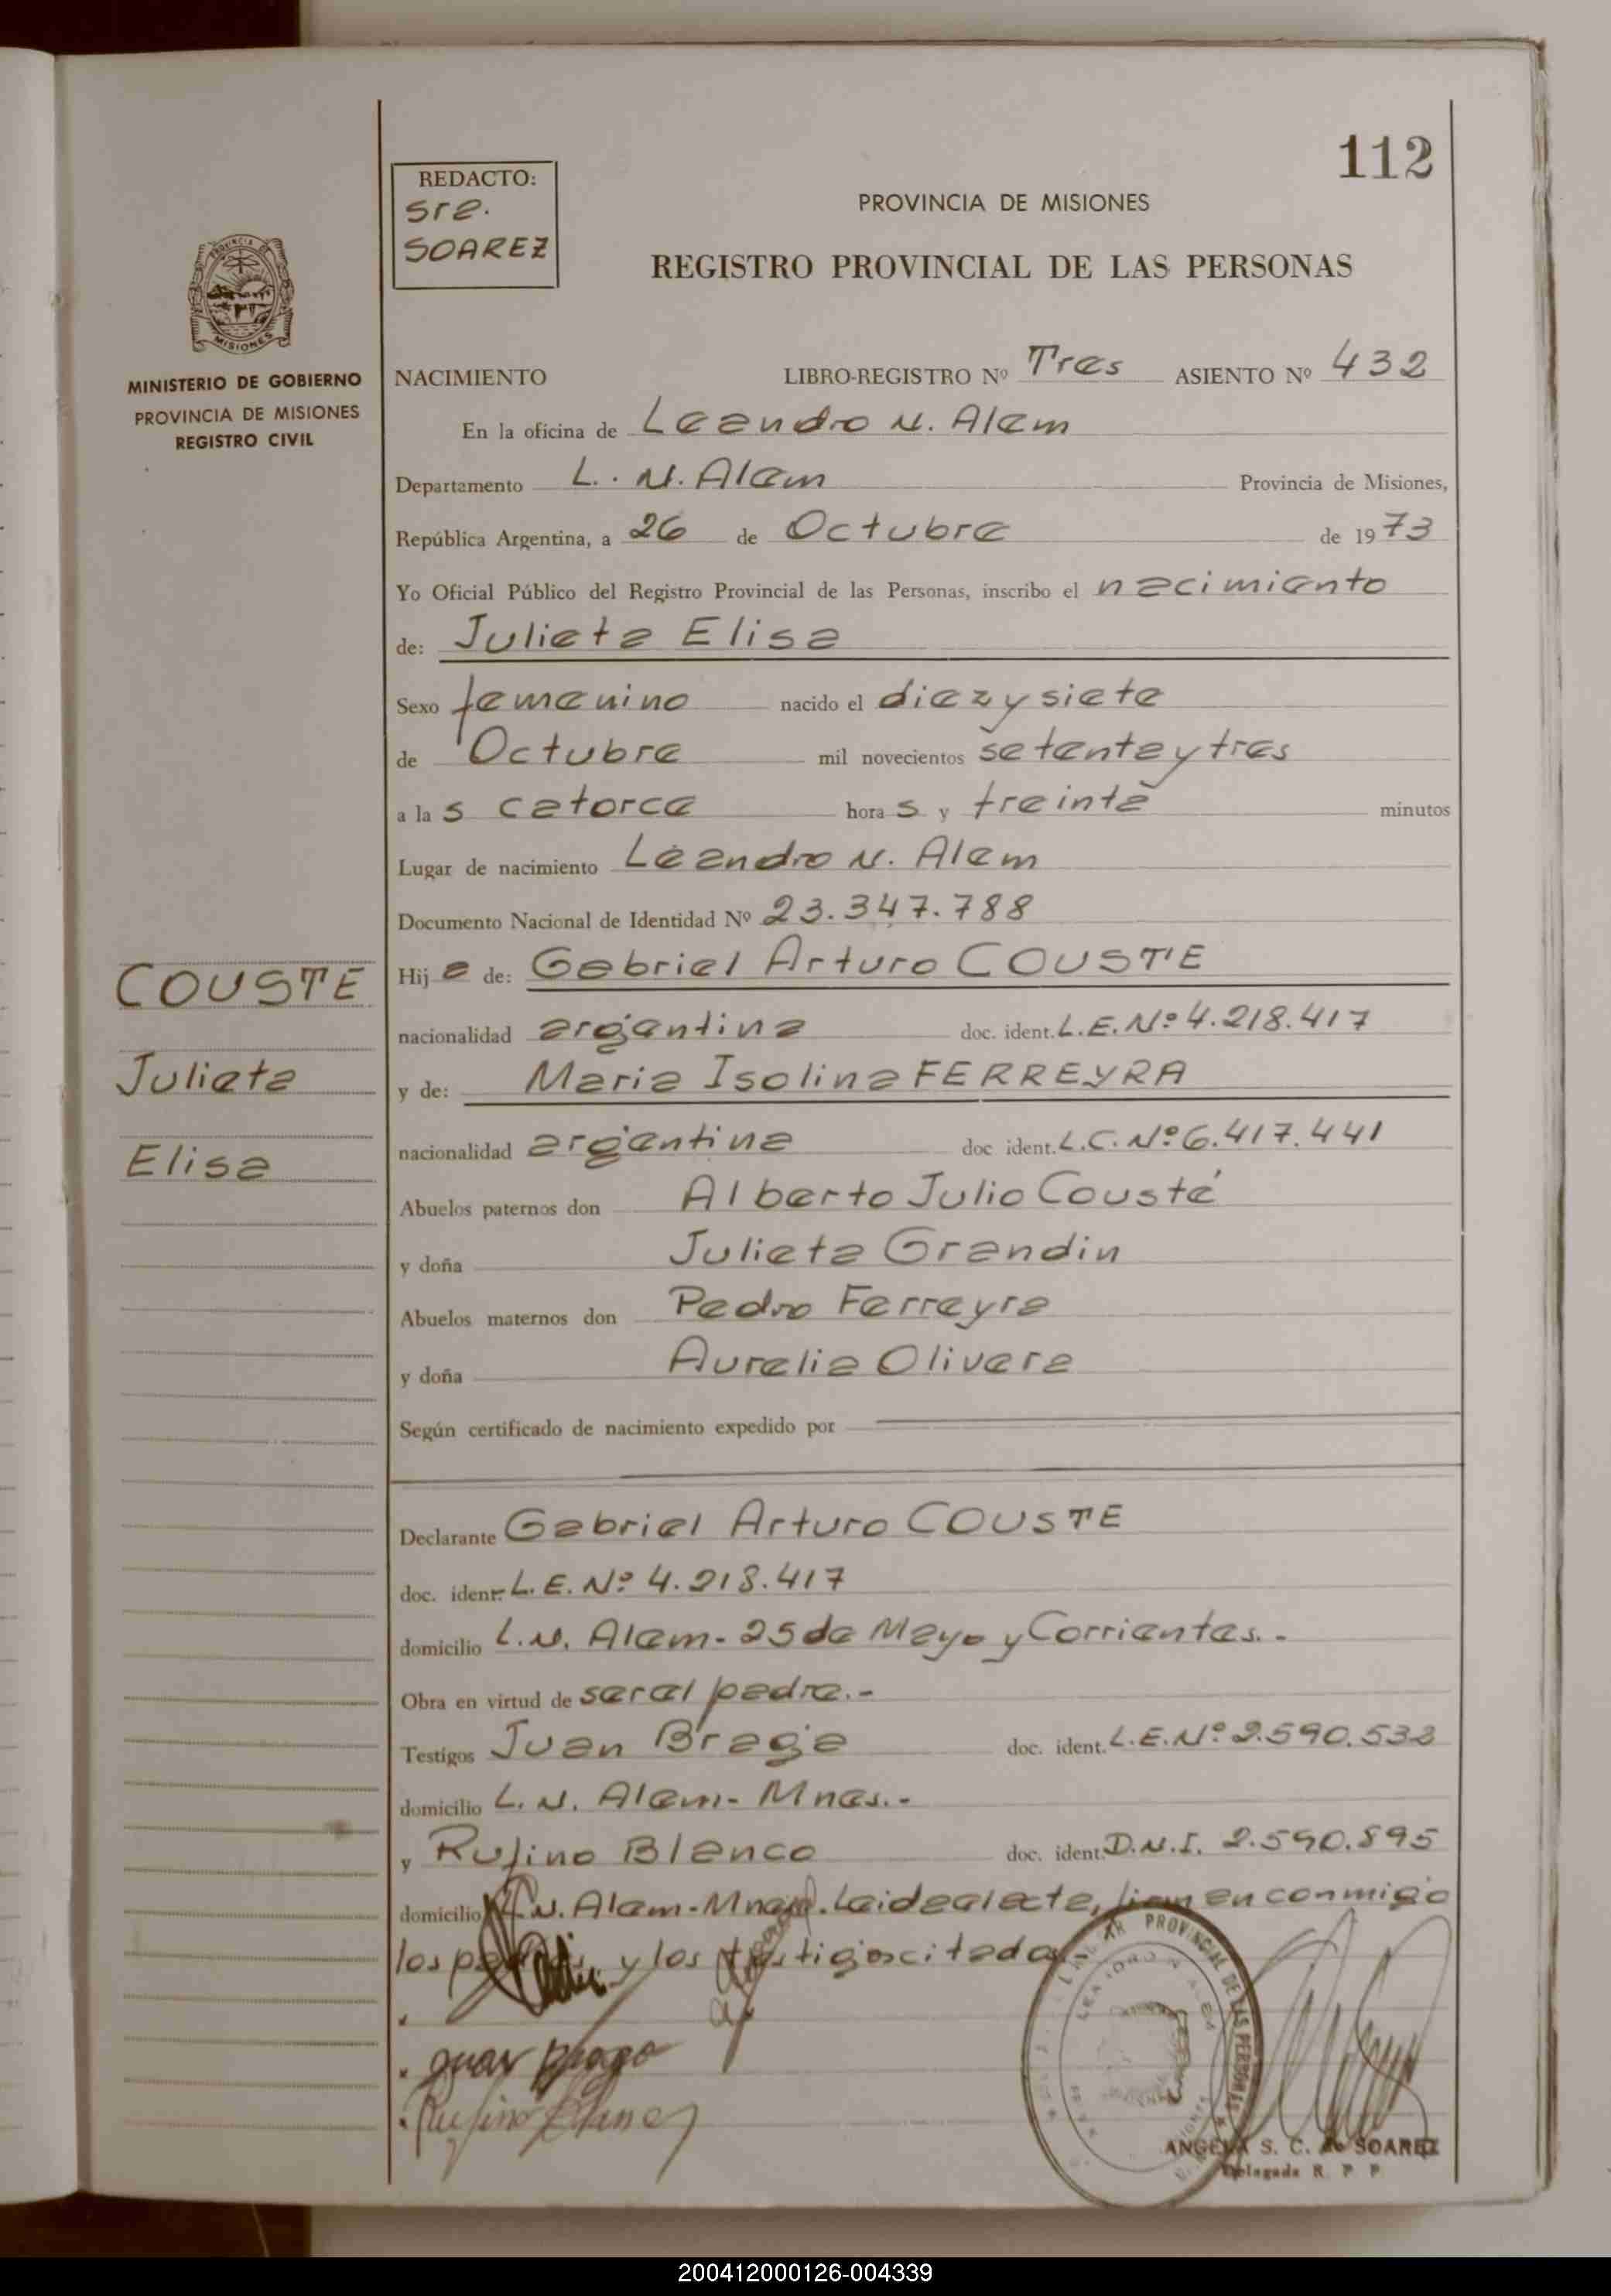 112
REDACTO:
Sra.
SOAREZ
PROVINCIA DE MISIONES
REGISTRO PROVINCIAL DE LAS PERSONAS
MINISTERIO DE GOBIERNO
PROVINCIA DE MISIONES
REGISTRO CIVIL
NACIMIENTO LIBRO-REGISTRO Nº Tres ASIENTO Nº 432
En la oficina de Leandro N. Alem
Departamento L. N. Alem Provincia de Misiones,
República Argentina, a 26 de Octubre de 1973
Yo Oficial Público del Registro Provincial de las Personas, inscribo el nacimiento
de: Julieta Elisa
Sexo femenino nacido el diez y siete
de Octubre mil novecientos setenta y tres
a las catorce horas y treinta minutos
Lugar de nacimiento Leandro N. Alem
Documento Nacional de Identidad Nº 23.347.788
COUSTE
Julieta
Elisa
Hija de: Gabriel Arturo COUSTE
nacionalidad argentina doc. ident. L.E. Nº 4.218.417
y de: Maria Isolina FERREYRA
nacionalidad argentina doc ident. L.C. Nº 6.417.441
Abuelos paternos don Alberto Julio Cousté
y doña Julieta Grandin
Abuelos maternos don Pedro Ferreyra
y doña Aurelia Olivera
Según certificado de nacimiento expedido por
Declarante Gabriel Arturo COUSTE
doc. ident. L.E. Nº 4.218.417
domicilio L.N. Alem - 25 de Mayo y Corrientes.-
Obra en virtud de ser el padre.-
Testigos Juan Braga doc. ident. L.E. Nº 2.590.533
domicilio L. N. Alem - Mnes.-
y Rufino Blanco doc. ident. D.N.I. 2.590.895
domicilio L.N. Alem - Mnes. Leida el acta, firman conmigo
los y los testigos citados
Juan Braga
Rufino Blanco
PROVINCIAL DE LAS PERSONAS
LEANDRO N. ALEM
MISIONES
ANGELA S. C. de SOAREZ
Delegada R. P. P.
200412000126-004339